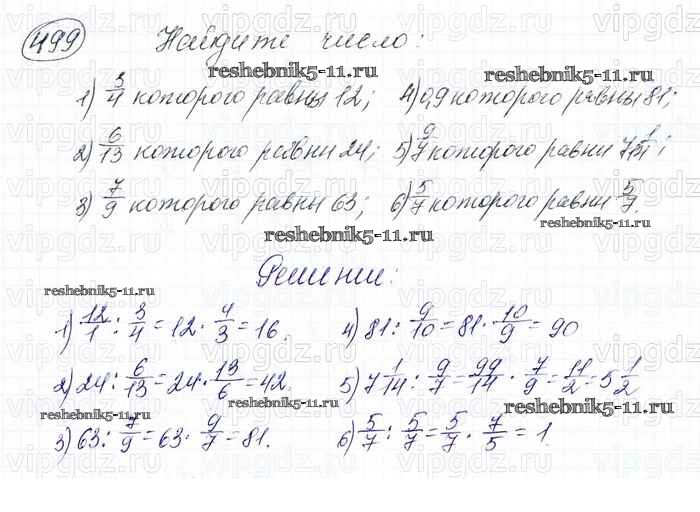 499 Найдите число:
reshebnik5-11.ru reshebnik5-11.ru
1) 3/4 которого равны 12; 4) 0,9 которого равны 81;
2) 6/13 которого равни 24; 5) 9/7 которого равни 7 1/14;
3) 7/9 которого равны 63; 6) 5/7 которого равни 5/7.
reshebnik5-11.ru reshebnik5-11.ru
Решении:
reshebnik5-11.ru
1) 12/1 : 3/4 = 12 · 4/3 = 16. 4) 81 : 9/10 = 81 · 10/9 = 90
2) 24 : 6/13 = 24 · 13/6 = 42. 5) 7 1/14 : 9/7 = 99/14 · 7/9 = 11/2 = 5 1/2
reshebnik5-11.ru reshebnik5-11.ru
reshebnik5-11.ru
3) 63 : 7/9 = 63 · 9/7 = 81. 6) 5/7 : 5/7 = 5/7 · 7/5 = 1.